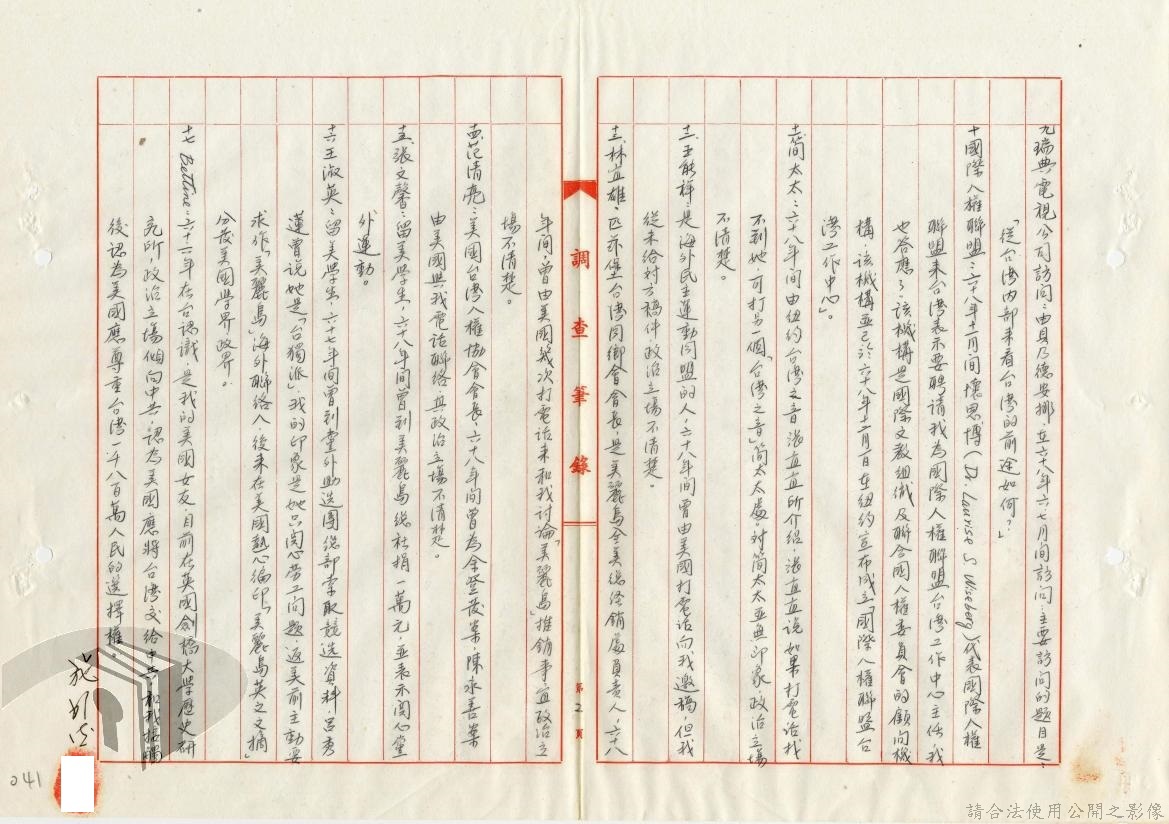 九瑞典電視公司訪問：由貝乃德安排，在六十八年六七月間訪問，主要訪問的題目是：
「從台湾內部來看台湾的前途如何？」
十國際人權聯盟：六十八年十一月間懷思博（Dr. Laurise S Wiseberg）代表國際人權
聯盟來台湾表示要聘請我為國際人權聯盟台湾工作中心主任，我
也答應了，該機構是國際文教組織及聯合國人權委員會的顧问機
構，該機構並已於六十八年十二月一日在紐約宣布成立「國際人權聯盟台
湾工作中心」。
十一簡太太：六十八年間由紐約台湾之音張直直所介紹，張直直說如果打電话找
不到她，可打另一個「台湾之音」簡太太處，对簡太太並無印象，政治立場
不清楚。
十二、王能祥：是海外民主運動同盟的人，六十八年間曾由美國打電话向我邀稿，但我
從未给对方稿件政治立場不清楚。
十三、林益雄：匹茨堡台湾同鄉會會長，是美麗島全美總经銷處負責人，六十八
調查筆錄
第2頁
年间，曾由美國幾次打電话來和我討論「美麗島」推銷事宜政治立
場不清楚。
十四、范清亮：美國台湾人權協會會長，六十八年間曾為余登發案，陳永善案
由美國與我電话聯絡其政治立場不清楚。
十五、張文馨：留美學生，六十八年間曾到美麗島總社捐一萬元，並表示関心黨
外運動。
十六王淑英：留美學生，六十七年间曾到黨外助选團總部索取競选資料，呂秀
蓮曾说她是「台獨派」，我的印象是她只関心劳工问題，返美前主動要
求作「美麗島」海外聯络人，後來在美國熱心编印「美麗島英文文摘」
分發美國學界、政界。
十七Bettine：六十二年在台認識，是我的美國女友，目前在英國劍橋大學歷史研
究所，政治立場傾向中共，認為美國應將台湾交给中共，和我接觸
後認為美國應尊重台湾一千八百萬人民的選擇權。
041
請合法使用公開之影像